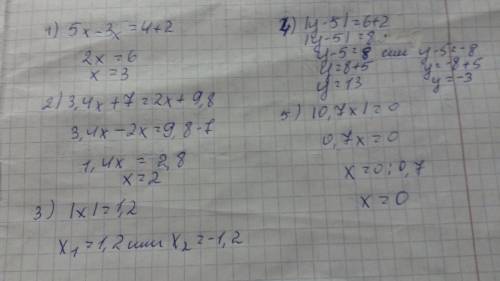 1) 5x-3x=4+2
2x=6
x=3
2) 3,4x+7=2x+9,8
3,4x-2x=9,8-7
1,4x=2,8
x=2
3) |x|=1,2
x₁=1,2 или x₂=-1,2
4) |y-5|=6+2
|y-5|=8
y-5=8 или y-5=-8
y=8+5 y=-8+5
y=13 y=-3
5) |0,7x|=0
0,7x=0
x=0:0,7
x=0